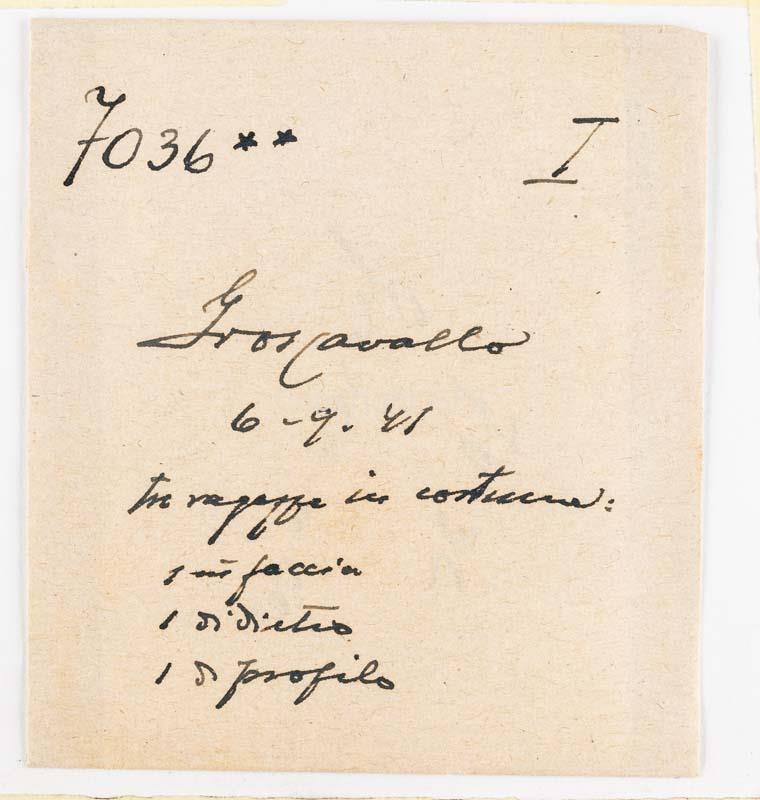 7036** I
Groscavallo
6-9.41
tre ragazze in costume:
1 in faccia
1 di dietro
1 di profilo